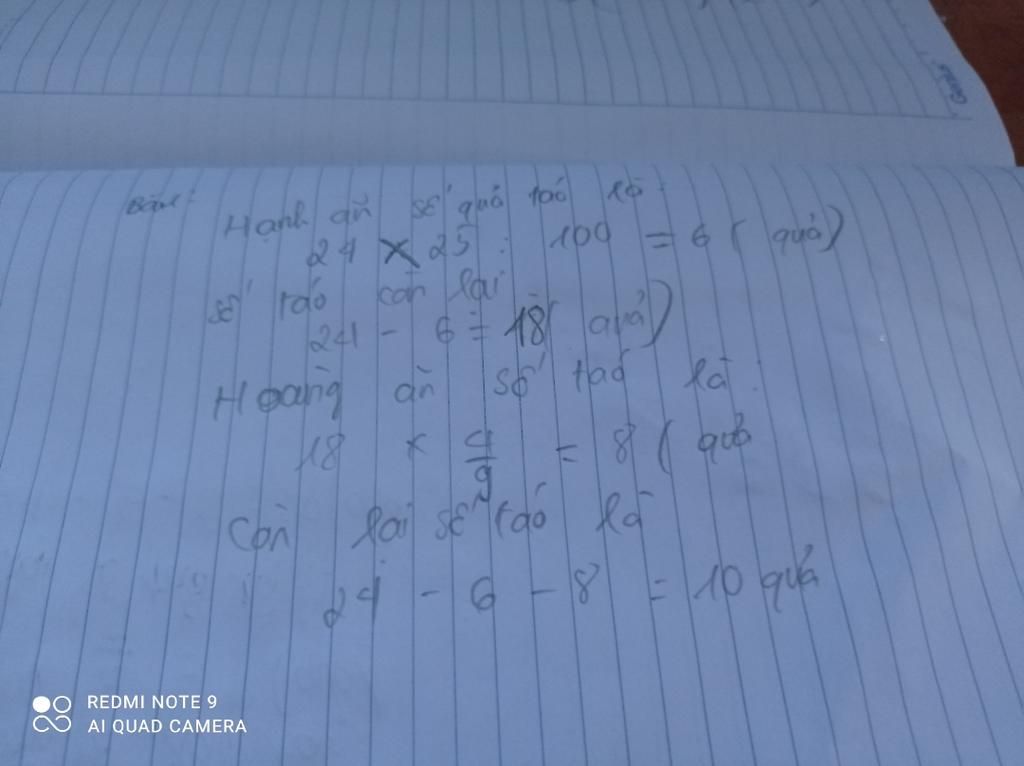 Hạnh ăn số quả táo là:
24 x 25 : 100 = 6 ( quả)
số táo còn lại
24 - 6 = 18 ( quả)
Hoàng ăn số táo là :
18 x 4/9 = 8 ( quả
Còn lại số táo là
24 - 6 - 8 = 10 quả
REDMI NOTE 9
AI QUAD CAMERA